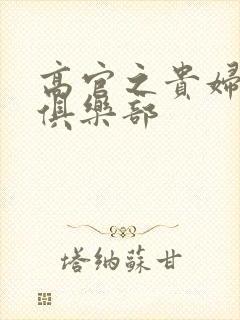 高官之貴婦
俱樂部
塔納蘇甘